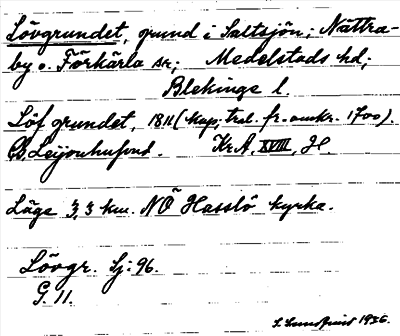 Lövgrundet, grund i Saltsjön; Nättra-
by o. Förkärla sn; Medelstads hd;
Blekinge l.
Löf grundet, 1811 (kop; trol. fr. omkr. 1700).
Leijonhufvud. Kr.A, XVIII, H.
Läge 3,3 km. NÖ Hasslö kyrka.
Lövgr. Sj: 96.
G. 11.
S. Sundquist 1936.